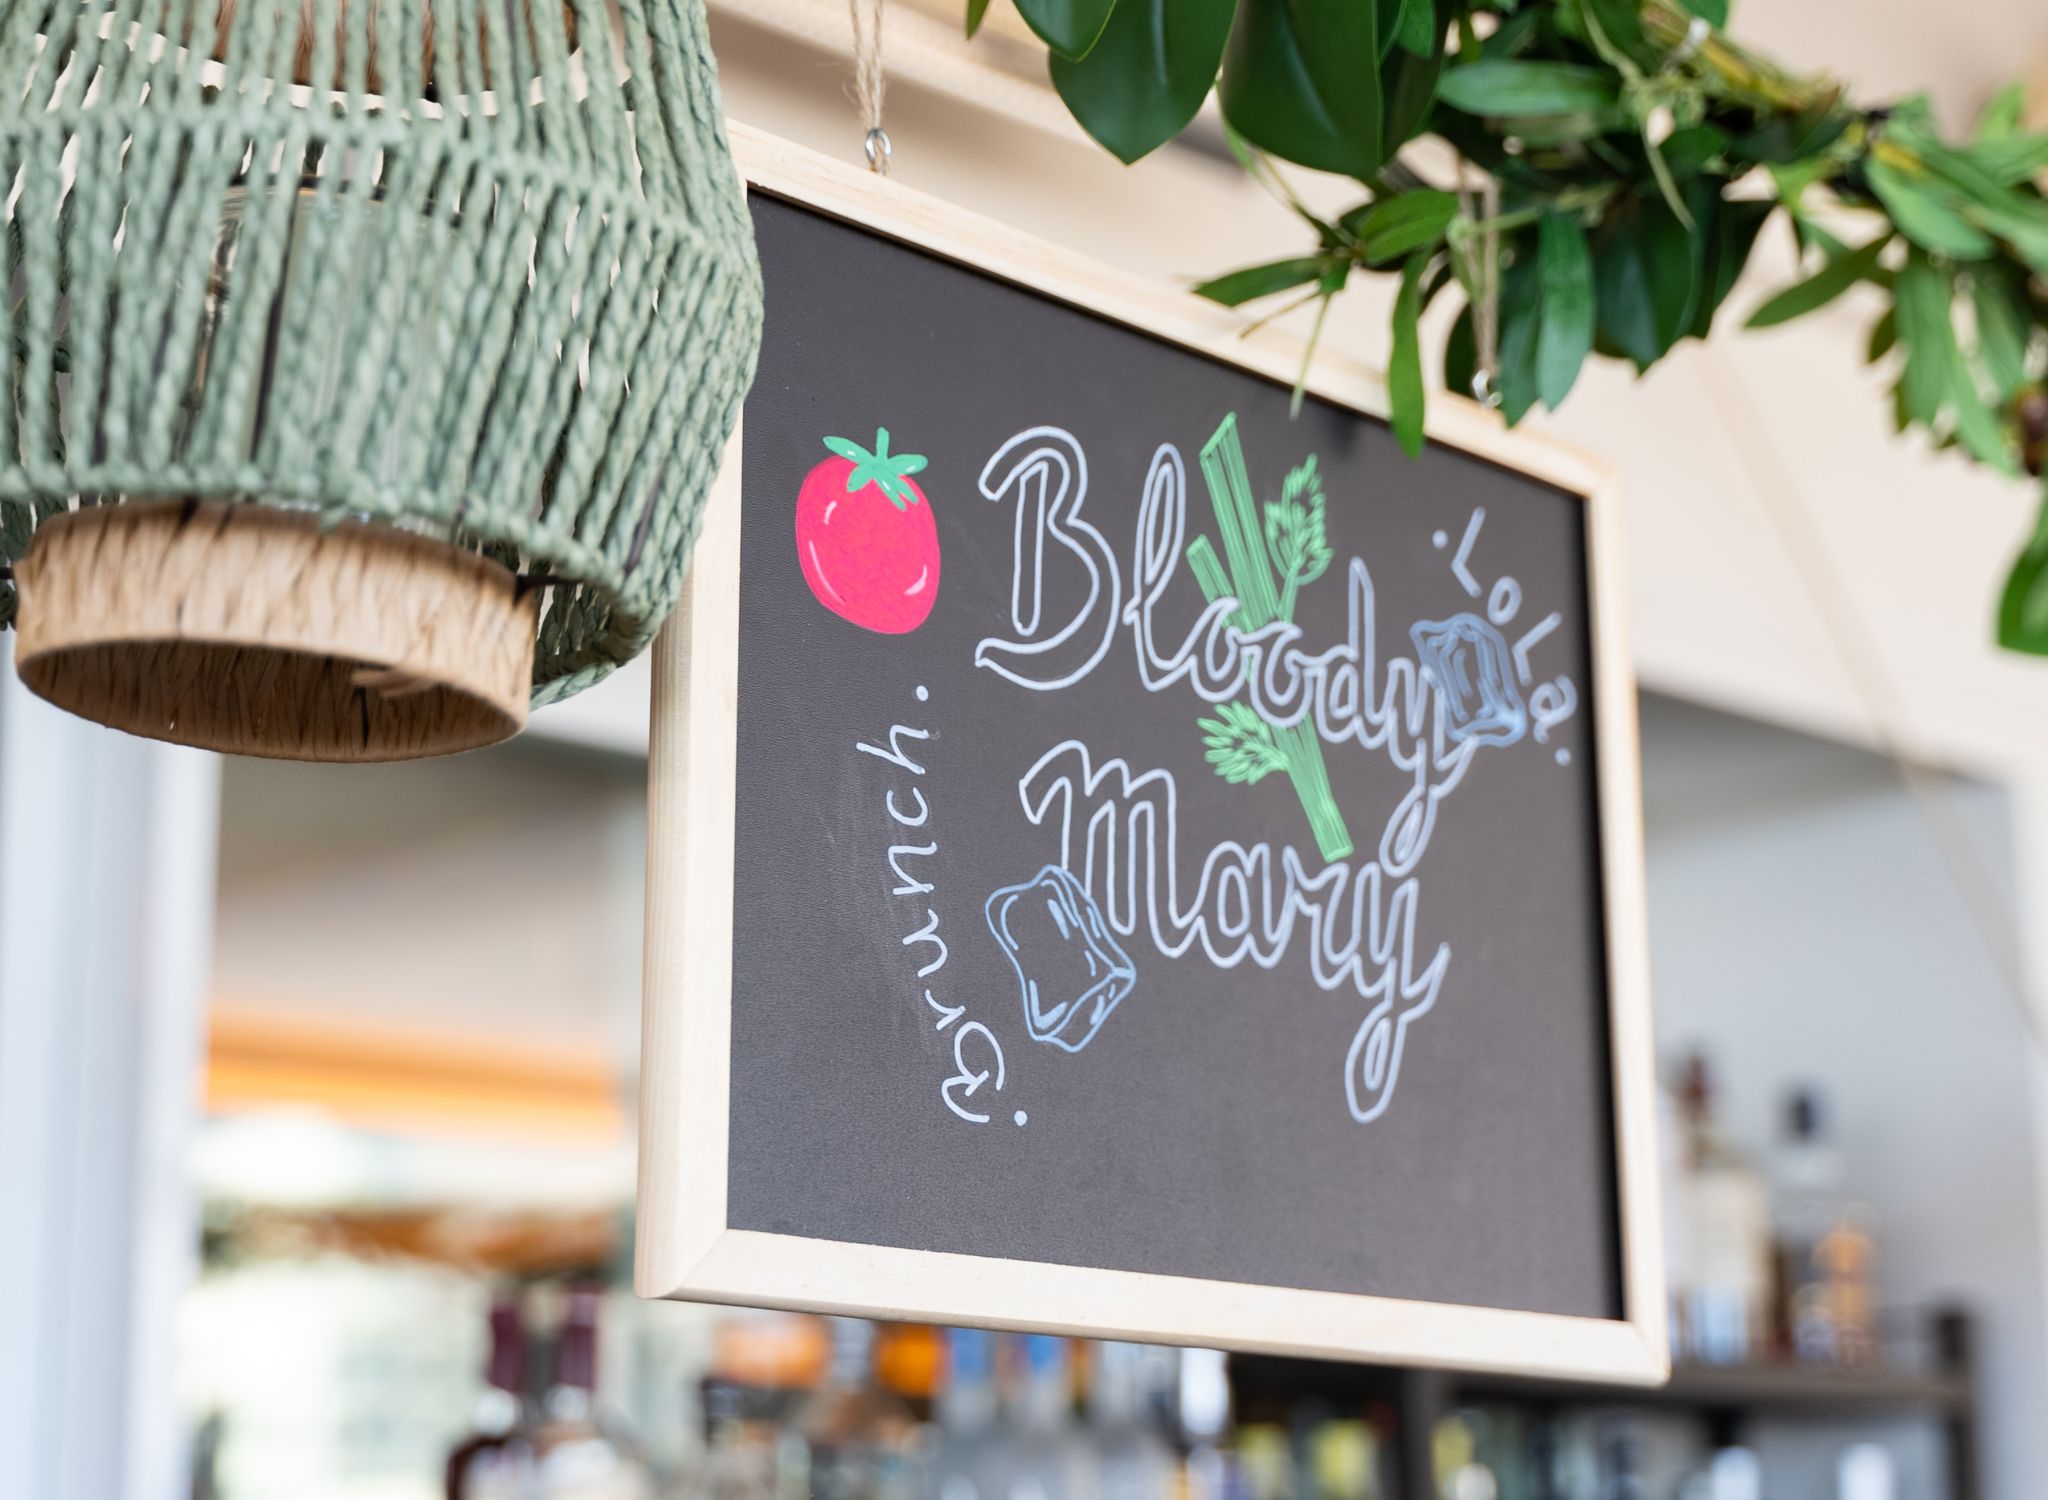 Bloody
Mary
.LoLa.
.Brunch.